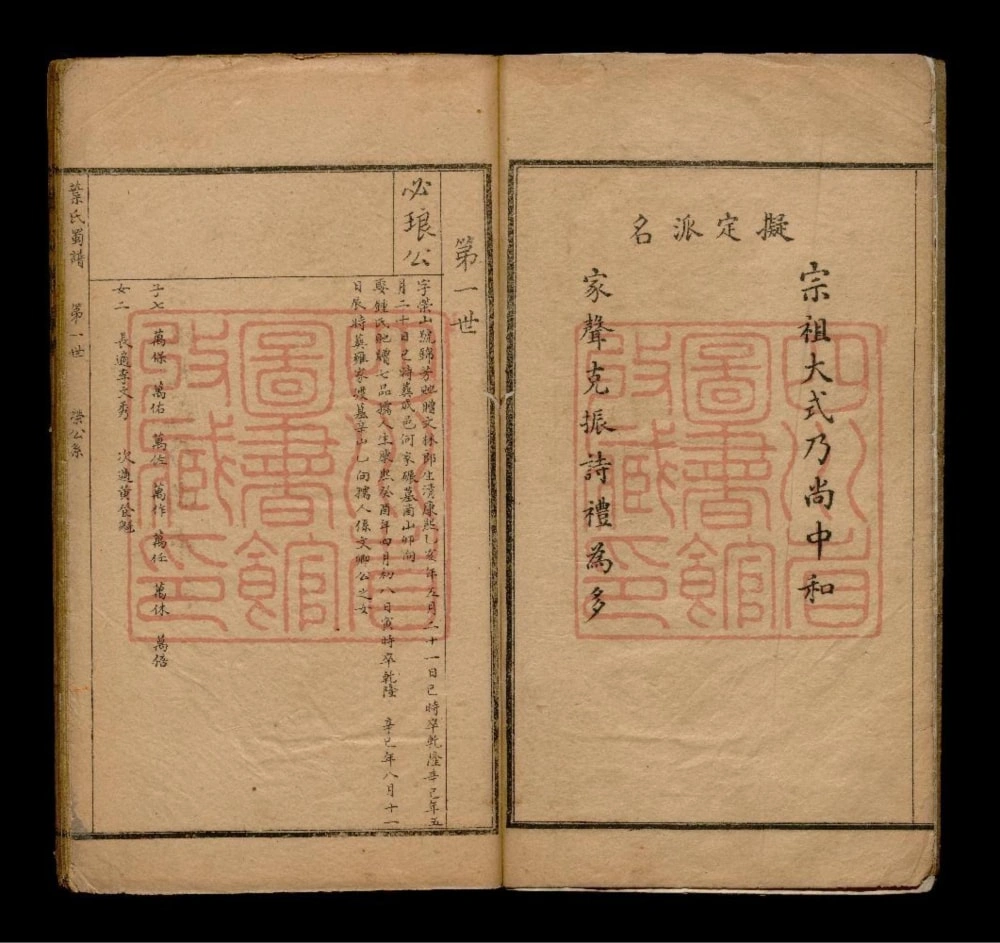 擬定派名
宗祖大式乃尚中和
家聲克振詩禮為多
四川省
圖書館
收藏印
第一世
必琅公
字榮山號錦芳貤贈文林郎生清康熙乙亥年五月二十一日巳時卒乾隆辛巳年五
月二十日巳時葬威邑河家碾墓山卯向
娶鍾氏貤贈七品孺人生康熙癸酉年四月初八日寅時卒乾隆 辛巳年八月十一
日辰時葬羅家墓辛山乙向孺人係文卿公之女
子七 萬保 萬佑 萬佐 萬作 萬任 萬休 萬俉
女二 長適李文秀 次適黃登魁
葉氏蜀譜 第一世 榮公系
四川省
圖書館
收藏印